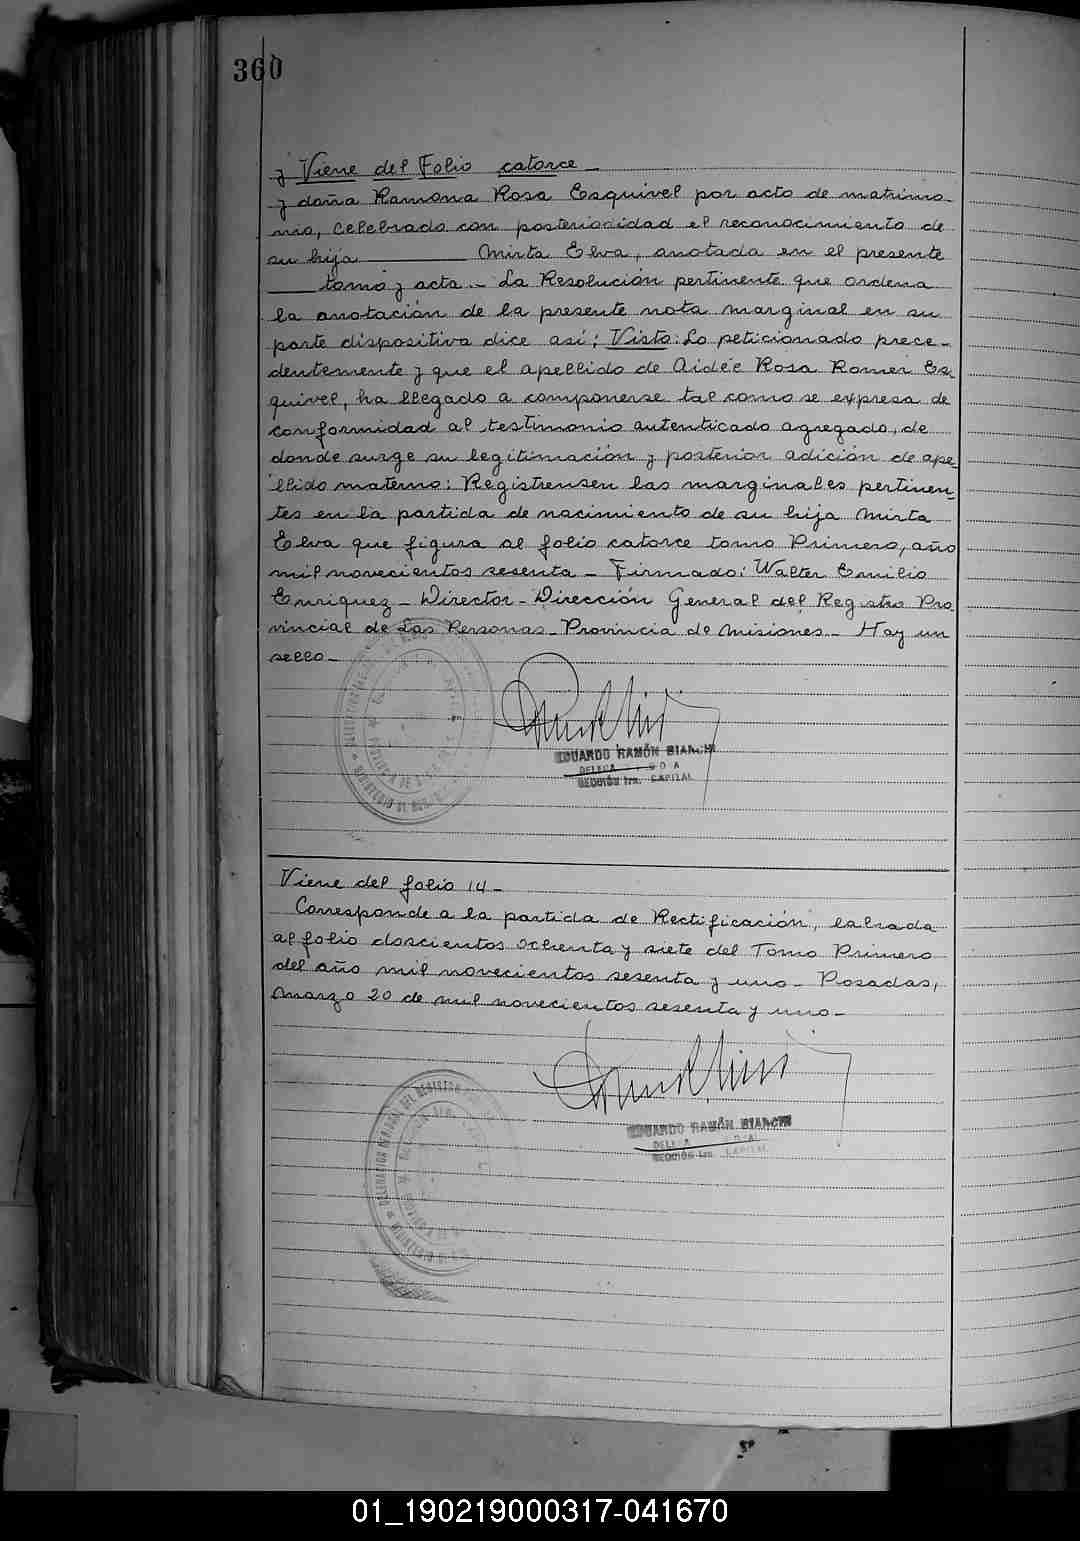 360
y Viene del Folio catorce _
y doña Ramona Rosa Esquivel por acto de matrimo-
nio, celebrado con posterioridad el reconocimiento de
su hija ______ Mirta Elva, anotada en el presente
___ tomo y acta. - La Resolución pertinente que ordena
la anotación de la presente nota marginal en su
parte dispositiva dice así: Visto: Lo peticionado prece-
dentemente y que el apellido de Aidée Rosa Romer Es-
quivel, ha llegado a componerse tal como se expresa de
conformidad al testimonio autenticado agregado, de
donde surge su legitimación y posterior adición de ape-
llido materno: Registrensen las marginales pertinen-
tes en la partida de nacimiento de su hija Mirta
Elva que figura al folio catorce tomo Primero, año
mil novecientos sesenta - Firmado: Walter Emilio
Enriquez - Director - Dirección General del Registro Pro-
vincial de Las Personas - Provincia de Misiones - Hay un
sello -
EDUARDO RAMÓN BIANCHI
SECCIÓN 1ra. CAPITAL
Viene del folio 14 -
Corresponde a la partida de Rectificación, labrada
al folio doscientos ochenta y siete del Tomo Primero
del año mil novecientos sesenta y uno - Posadas,
Marzo 20 de mil novecientos sesenta y uno -
EDUARDO RAMÓN BIANCHI
SECCIÓN 1ra. CAPITAL
01_190219000317-041670